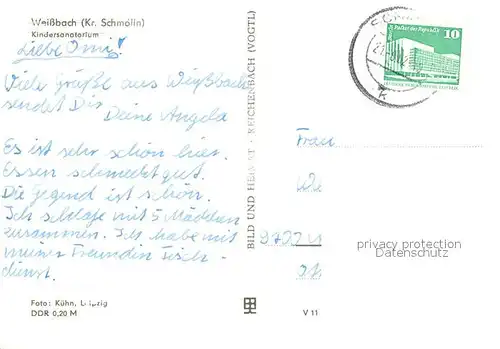 Weißbach (Kr. Schmölln)
Kindersanatorium
Liebe Omi!
Viele Grüße aus Weißbach
sendet Dir
Deine Angela
Es ist sehr schön hier.
Essen schmeckt gut.
Die Gegend ist schön.
Ich schlafe mit 5 Mädchen
zusammen. Ich habe mit
meiner Freundin Tisch-
dienst.
Foto: Kühn, Leipzig
DDR 0,20 M
BILD UND HEIMAT · REICHENBACH (VOGTL)
V 11
10
Palast der Republik
Frau
privacy protection
Datenschutz